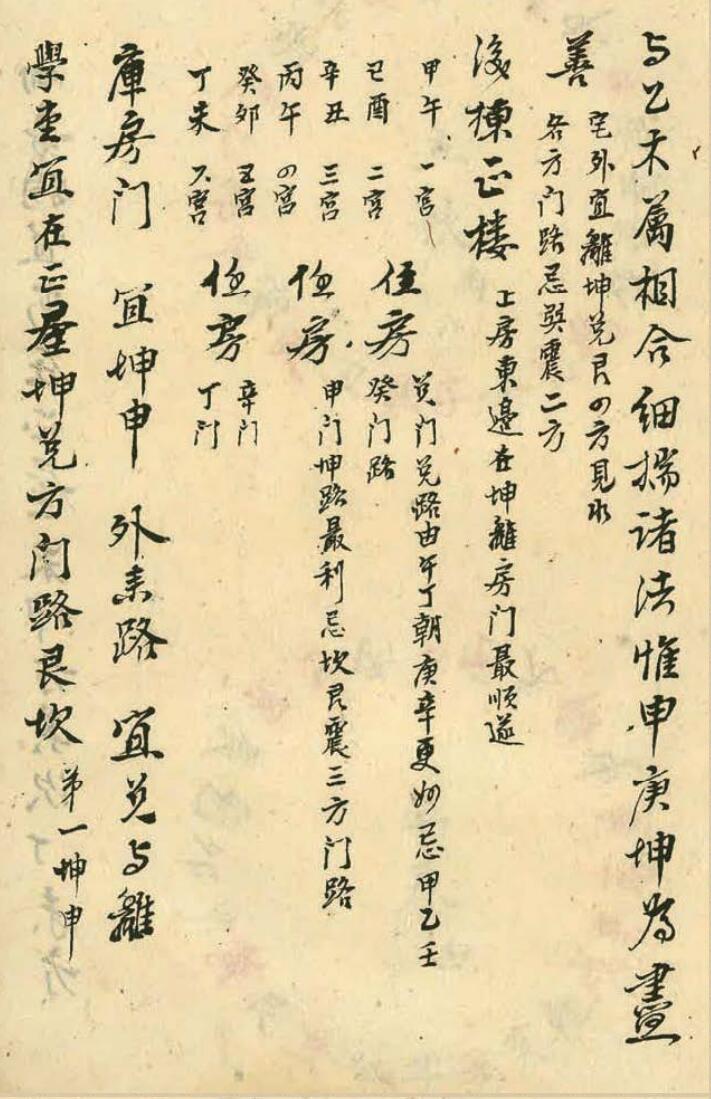 与乙木属相合细揣诸法惟申庚坤为尽
善
宅外宜離坤兑艮四方見水
各方门路忌巽震二方
後棟正楼
上房東邊在坤離房门最順遂
甲午 一宫
己酉 二宫
辛丑 三宫
丙午 四宫
癸卯 五宫
丁未 六宫
住房
兑门兑路由午丁朝庚辛更妙忌甲乙壬
癸门路
住房
申门坤路最利忌坎艮震三方门路
住房
辛门
丁门
庫房门 宜坤申 外来路 宜兑与離
學堂宜在正屋坤兑方门路艮坎
第一坤申